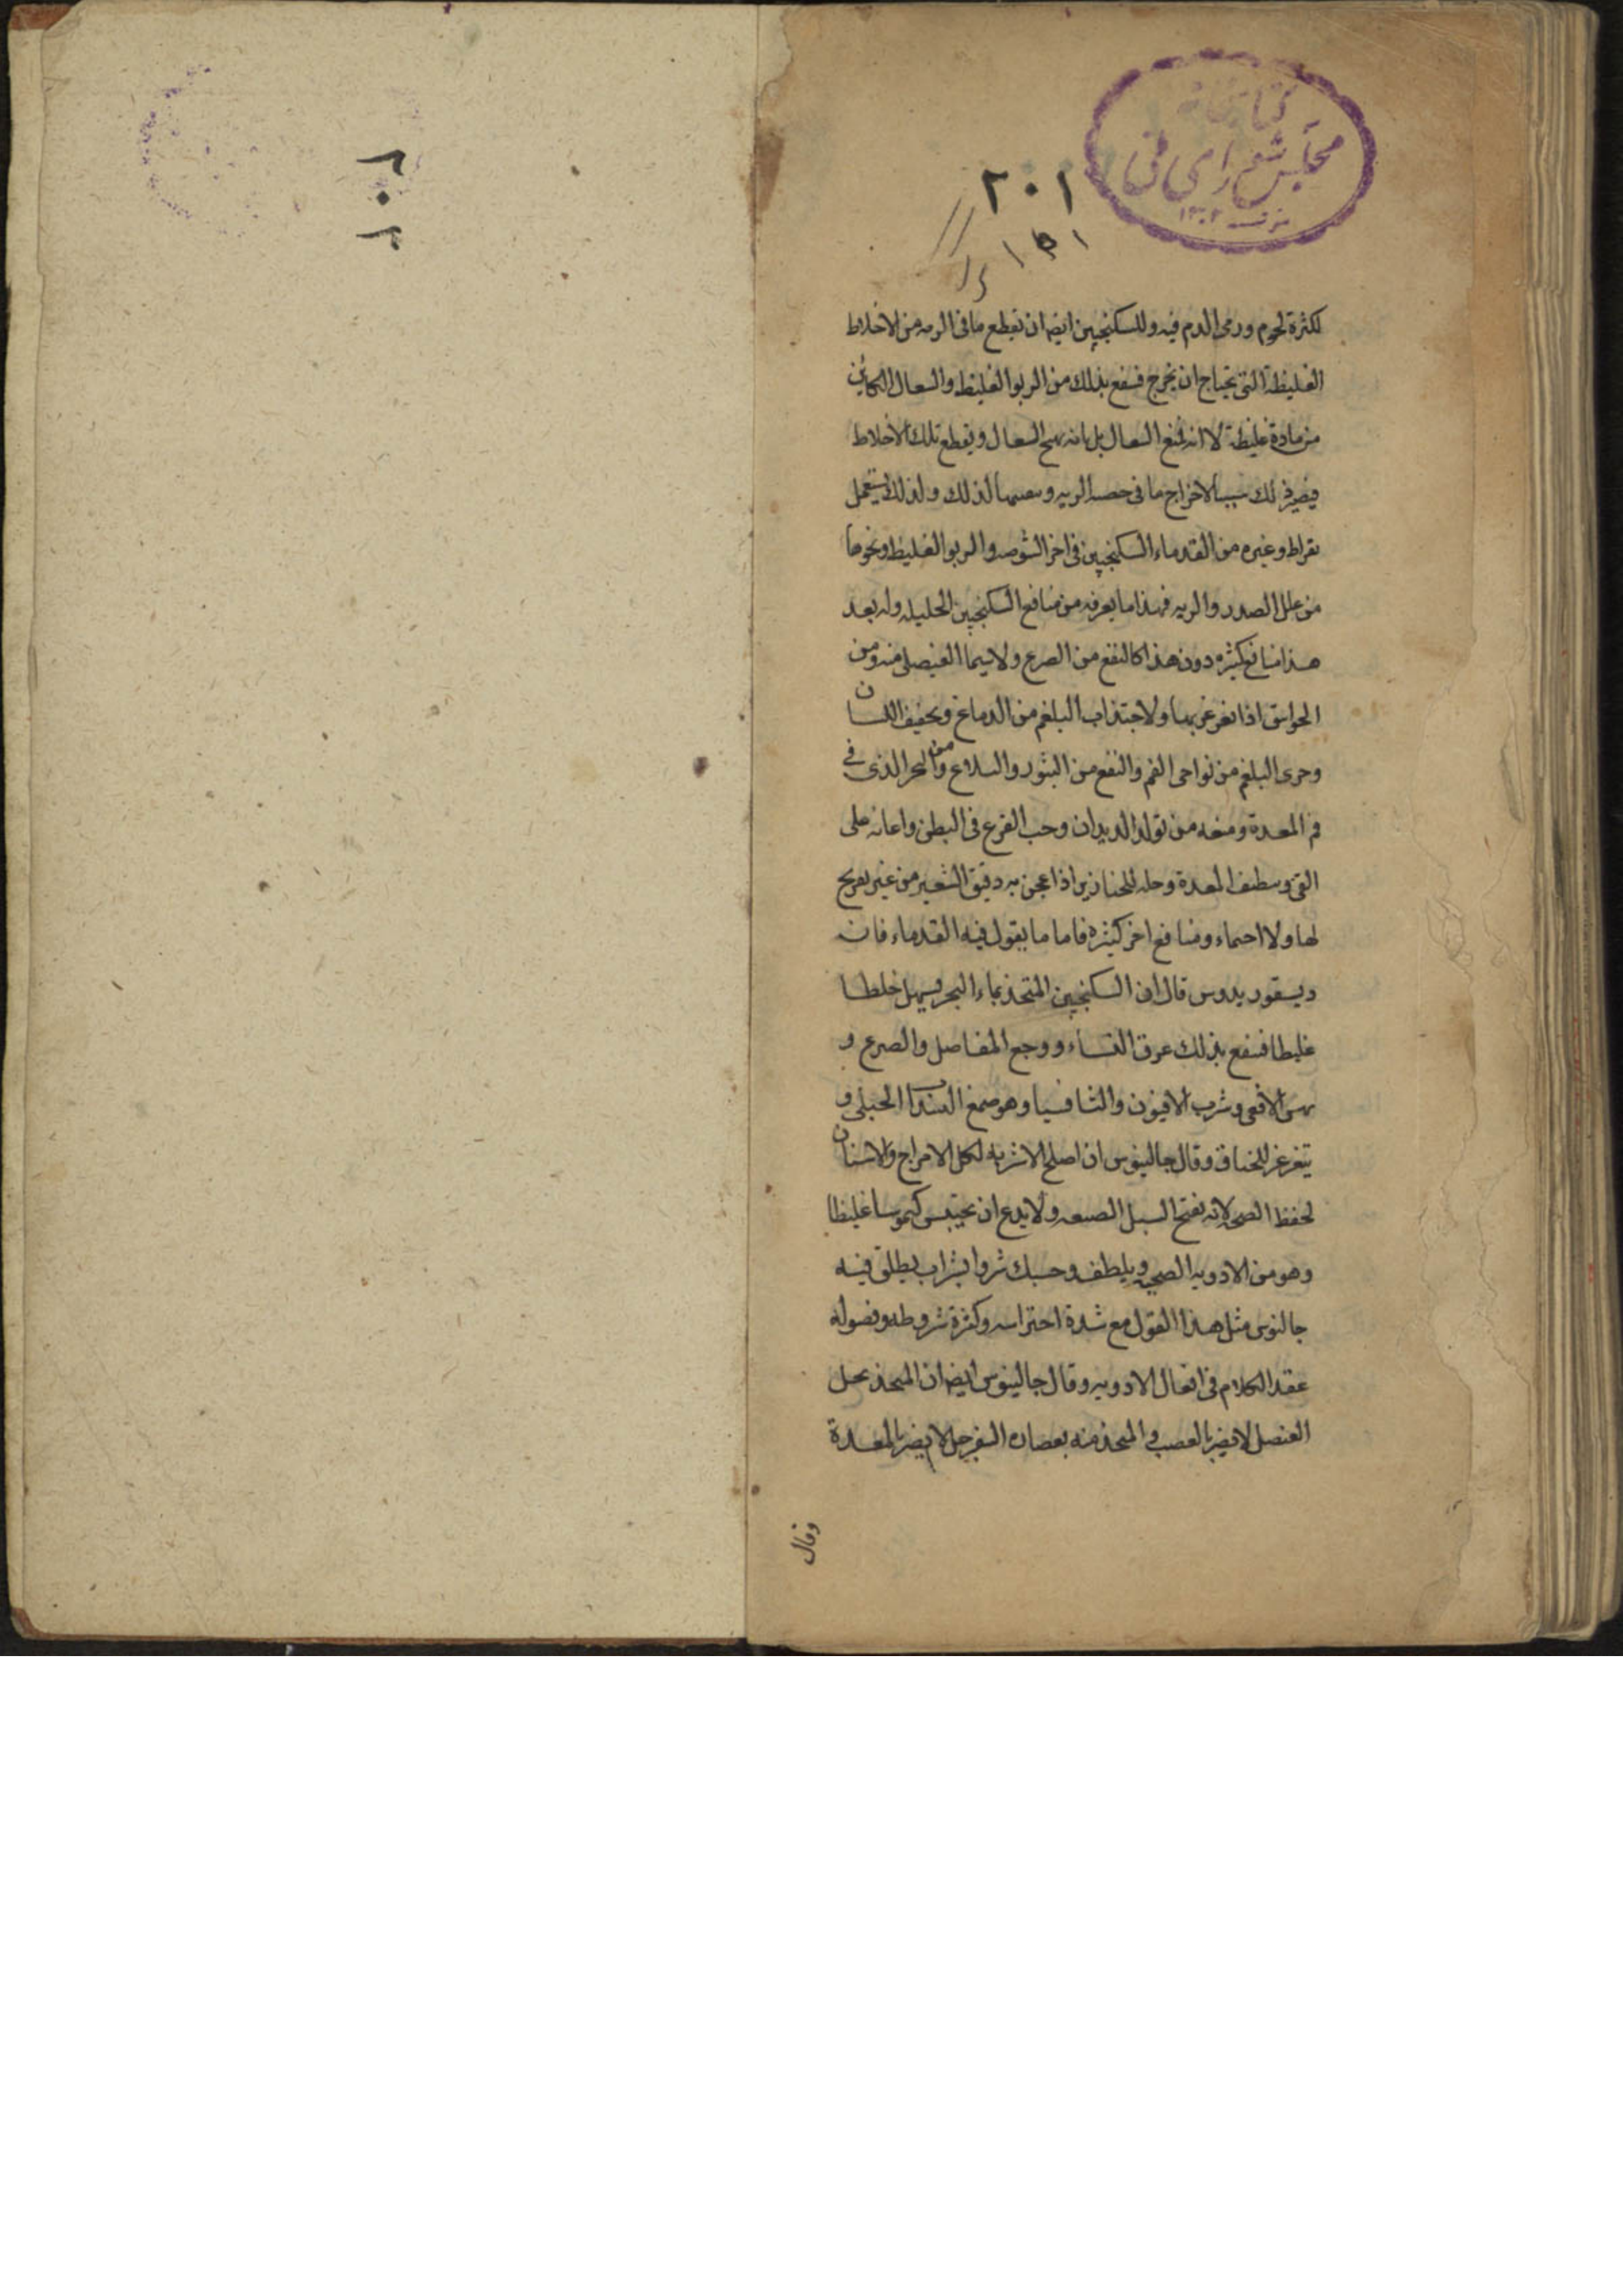 كتابخانه
مجلس شورای ملی
۱۳۰۲
۲۰۱
۱۵۱
۲۰۲
لكثرة لحوم ورمى الدم فيه وللسكنجبين ايضا ان تقطع ما فى الريه من الاخلاط
الغليظة التى يحتاج ان يخرج فينفع بذلك من الربو الغليظ والسعال الكائن
من مادة غليظة لا انه لمنع السعال بل بانه يهيج السعال ويقطع تلك الاخلاط
فيصير ذلك سببا لاخراج ما فى الريه لذلك ولذلك يستعمل
بقراط وغيره من القدماء السكنجبين فى اخر الشوصه والربو الغليظ ونحوها
من علل الصدر والريه فهذا ما يعرفه من منافع السكنجبين الجليله وله بعد
هذا منافع كثيره دون هذا كالنفع من الصرع ولا سيما العنصلى منه ومن
الخوانيق اذا تغرغر بها ولاجتذاب البلغم من الدماغ وتخفيف اللسان
البلغم من نواحى الفم والنفع من البثور والسلاع ومن البخر الذى فى
فم المعدة ومنعه من تولد الديدان وحب القرع فى البطن واعانه على
القى المعدة وحله للخنازير اذا عجن به دقيق الشعير من غير تقريح
لها ولا احماء ومنافع اخر كثيره فاما ما يقول فيه القدماء فان
ديسقوريدوس قال ان السكنجبين المتخذ بماء البحر يسهل خلطا
غليظا فينفع بذلك عرق النساء ووجع المفاصل والصرع و
نهش الافعى وشرب الافيون والثافسيا وهو صمغ السذاب الجبلى و
يتغرغر للخناق وقال جالينوس ان اصلح الاشربه لكل الامزاج والاسنان
لحفظ الصحه لانه يفتح السبل الضيقه ولا يدع ان يحتبس كيموسا غليظا
وهو من الادويه الصحيه ويلطف وحسبك بشراب يطلق فيه
جالنوس مثل هذا القول مع شدة احتراسه وكثرة شروطه وفصوله
عقد الكلام فى افعال الادويه وقال جالينوس ايضا ان المتخذ بخل
العنصل لا يضر بالعصب و المتخذ منه بعصاره السفرجل لا يضر بالمعدة
وقال